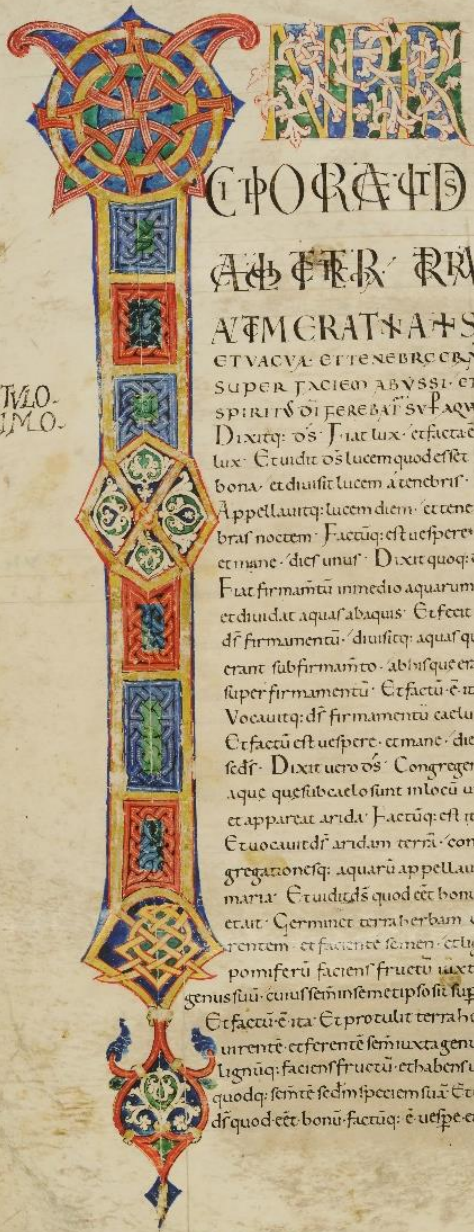 TVLO.
IMO.
ET VACVA. ET TENEBRE ERAN
SUPER FACIEM ABYSSI. ET
SPIRITVS DI FEREBAT SVP AQV
Dixitq: d̄s. Fiat lux. et facta ē
lux. Et uidit d̄s lucem quod esset
bona. et diuisit lucem a tenebris.
Appellauitq: lucem diem. et tene
bras noctem. Factūq: est uespere
et mane. dies unus. Dixit quoq:
Fiat firmam̄tū inmedio aquarum
et diuidat aquas abaquis. Et fecit
d̄s firmamentū. diuisitq: aquas qu
erant sub firmam̄to. ab his que er
super firmamentū. Et factū ē it
Vocauitq: d̄s firmamentū caelu
Et factū est uespere. et mane. die
sc̄ds. Dixit uero d̄s. Congregen
aquę que sub caelo sunt in locū u
et appareat arida. Factūq: est it
Et uocauit d̄s aridam terrā. con
gregationesq: aquarū appellau
maria. Et uidit d̄s quod eēt bonū
et ait. Germinet terra herbam u
rentem. et faciente semen. et lig
pomiferū faciens fructū iuxt
genus suū. cuius sem̄ in semetipso sit sup
Et factū ē ita. Et protulit terra he
uirentē. et ferentē sem̄ iuxta genu
lignūq: faciens fructū. et habens u
quodq: sem̄tē sed̄m speciem suā. Et
d̄s quod eēt bonū. factūq: ē uesp̄e. e